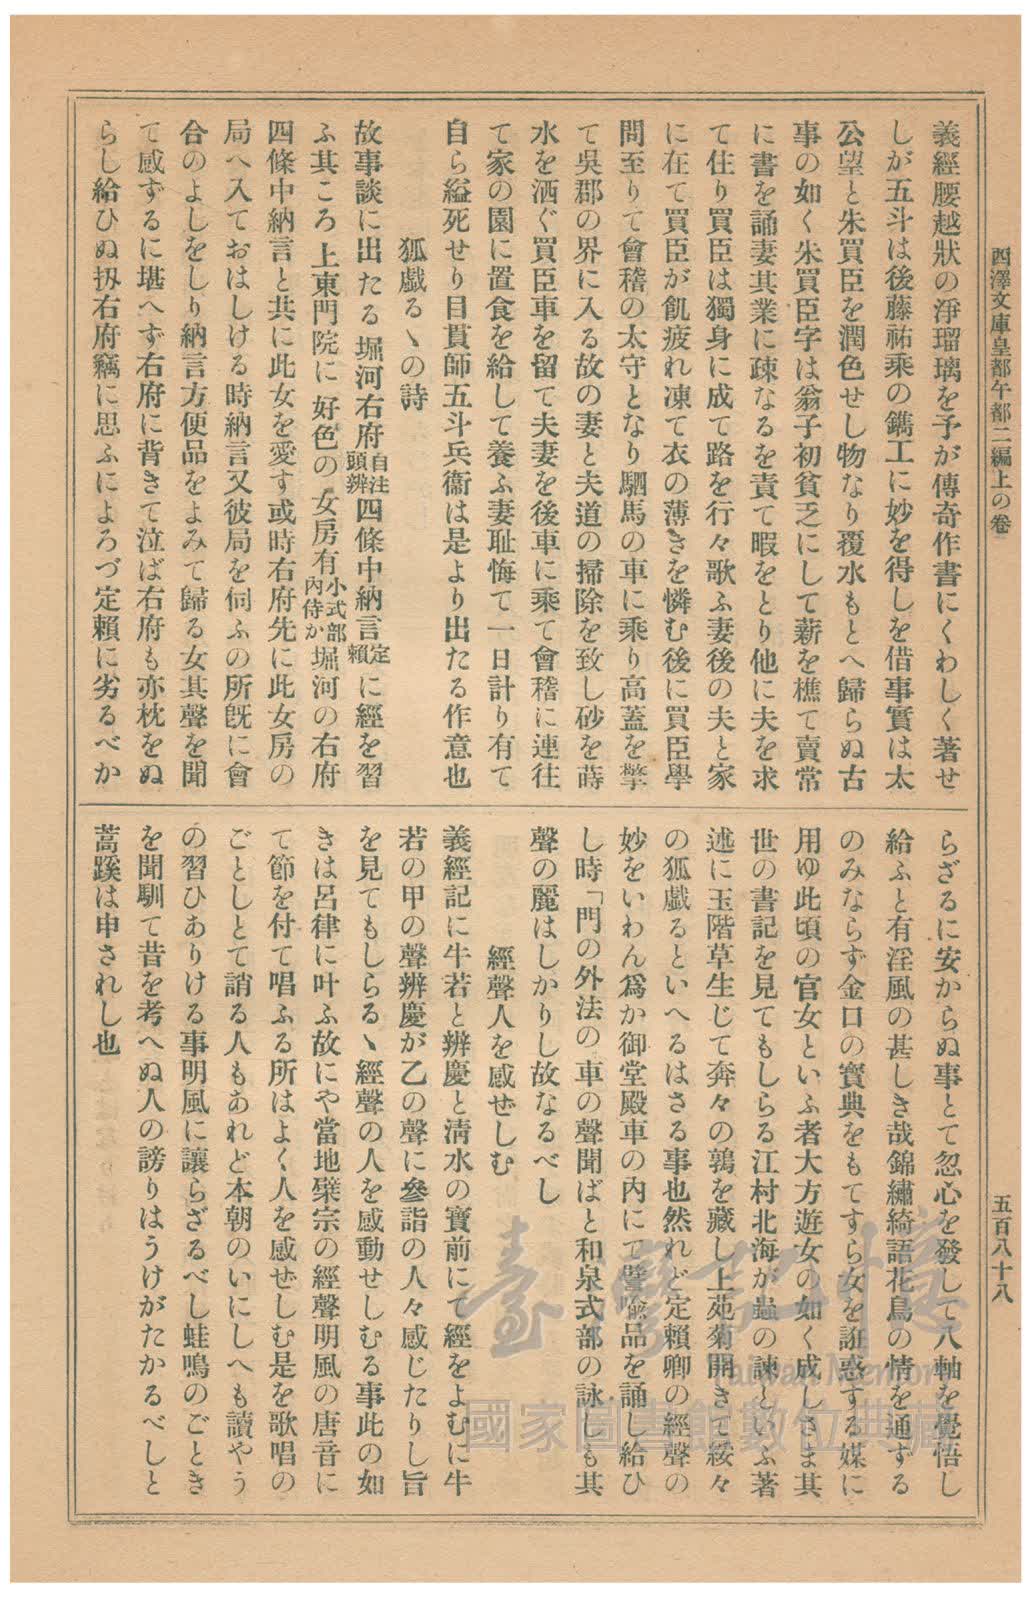 西澤文庫皇都午都二編上の卷
五百八十八
義經腰越狀の淨瑠璃を予が傳奇作書にくわしく著せ
しが五斗は後藤祐乘の鐫工に妙を得しを借事實は太
公望と朱買臣を潤色せし物なり覆水もとへ歸らぬ古
事の如く朱買臣字は翁子初貧乏にして薪を樵て賣常
に書を誦妻其業に疎なるを責て暇をとり他に夫を求
て住り買臣は獨身に成て路を行々歌ふ妻後の夫と家
に在て買臣が飢疲れ凍て衣の薄きを憐む後に買臣學
問至りて會稽の太守となり駟馬の車に乘り高蓋を擎
て吳郡の界に入る故の妻と夫道の掃除を致し砂を蒔
水を洒ぐ買臣車を留て夫妻を後車に乘て會稽に連往
て家の園に置食を給して養ふ妻耻悔て一日計り有て
自ら縊死せり目貫師五斗兵衞は是より出たる作意也
狐戯るヽの詩
故事談に出たる堀河右府自注頭辨四條中納言定賴に經を習
ふ其ころ上東門院に好色の女房有小式部內侍か堀河の右府
四條中納言と共に此女を愛す或時右府先に此女房の
局へ入ておはしける時納言又彼局を伺ふの所旣に會
合のよしをしり納言方便品をよみて歸る女其聲を聞
て感ずるに堪へず右府に背きて泣ば右府も亦枕をぬ
らし給ひぬ扨右府竊に思ふによろづ定賴に劣るべか
らざるに安からぬ事とて忽心を發して八軸を覺悟し
給ふと有淫風の甚しき哉錦繡綺語花鳥の情を通ずる
のみならず金口の寶典をもてすら女を誑惑する媒に
用ゆ此頃の官女といふ者大方遊女の如く成しさま其
世の書記を見てもしらる江村北海が蟲の諫といふ著
述に玉階草生じて奔々の鶉を藏し上苑菊開きて綏々
の狐戯るといへるはさる事也然れど定賴卿の經聲の
妙をいわん爲か御堂殿車の內にて譬喩品を誦し給ひ
し時「門の外法の車の聲聞ばと和泉式部の詠しも其
聲の麗はしかりし故なるべし
經聲人を感ぜしむ
義經記に牛若と辨慶と淸水の寶前にて經をよむに牛
若の甲の聲辨慶が乙の聲に參詣の人々感じたりし旨
を見てもしらるヽ經聲の人を感動せしむる事此の如
きは呂律に叶ふ故にや當地檗宗の經聲明風の唐音に
て節を付て唱ふる所はよく人を感ぜしむ是を歌唱の
ごとしとて誚る人もあれど本朝のいにしへも讀やう
の習ひありける事明風に讓らざるべし蛙鳴のごとき
を聞馴て昔を考へぬ人の謗りはうけがたかるべしと
蒿蹊は申されし也
臺灣記憶
Taiwan Memory
國家圖書館數位典藏